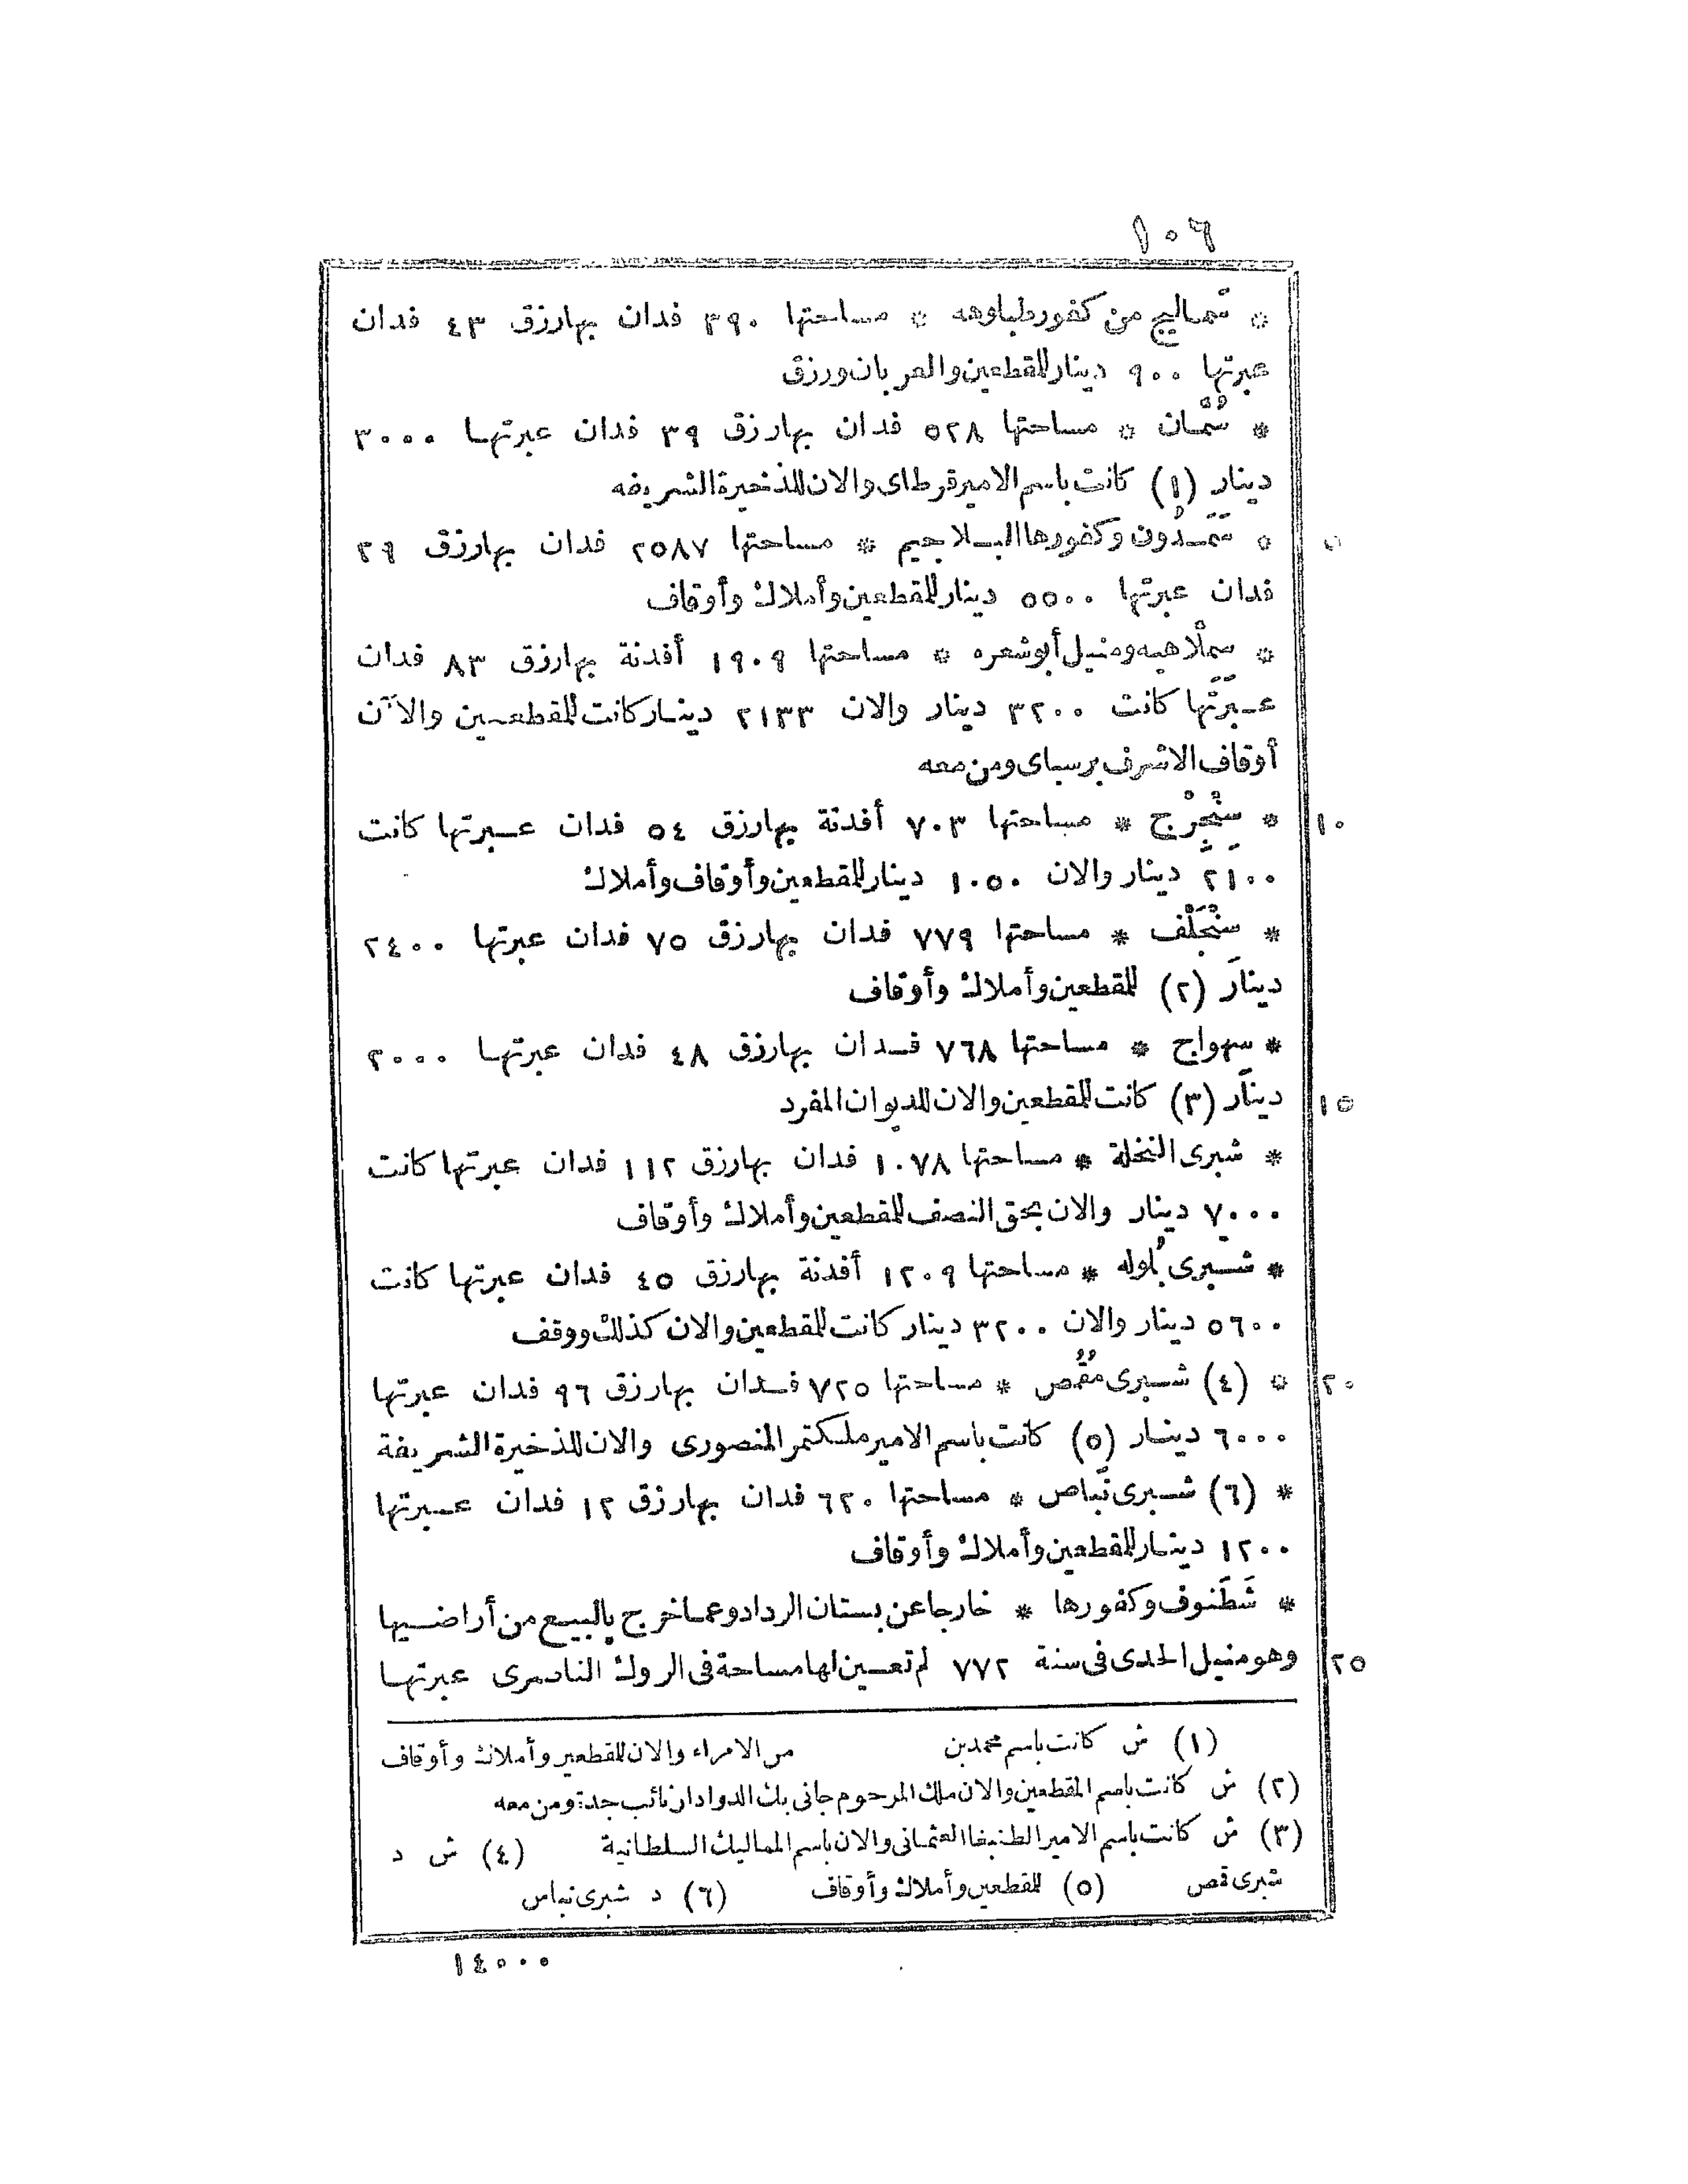 ١٠٦
* شماليج من كفور طباوهه * مساحتها ٣٩٠ فدان بها رزق ٤٣ فدان
عبرتها ٩٠٠ دينار للمقطعين والعربان ورزق
* سُمَّان * مساحتها ٥٢٨ فدان بها رزق ٣٩ فدان عبرتها ٣٠٠٠
دينار (١) كانت باسم الامير قرطاى والان للذخيرة الشريفه
* سَمَدُون وكفورها البلاجيم * مساحتها ٢٥٨٧ فدان بها رزق ٣٩ ٥
فدان عبرتها ٥٥٠٠ دينار للمقطعين وأملاك وأوقاف
* سملاهيه ومنيل أبو شعره * مساحتها ١٩٠٩ أفدنة بها رزق ٨٣ فدان
عبرتها كانت ٣٢٠٠ دينار والان ٢١٣٣ دينار كانت للمقطعين والآن
أوقاف الاشرف برسباى ومن معه
* سِنْجِرْج * مساحتها ٧٠٣ أفدنة بها رزق ٥٤ فدان عبرتها كانت ١٠
٢١٠٠ دينار والان ١٠٥٠ دينار للمقطعين وأوقاف وأملاك
* سنْجَلْف * مساحتها ٧٧٩ فدان بها رزق ٧٥ فدان عبرتها ٢٤٠٠
دينار (٢) للمقطعين وأملاك وأوقاف
* سهواج * مساحتها ٧٦٨ فدان بها رزق ٤٨ فدان عبرتها ٢٠٠٠
دينار (٣) كانت للمقطعين والان للديوان المفرد ١٥
* شبرى النخلة * مساحتها ١٠٧٨ فدان بها رزق ١١٢ فدان عبرتها كانت
٧٠٠٠ دينار والان بحق النصف للمقطعين وأملاك وأوقاف
* شبرى بُلوله * مساحتها ١٢٠٩ أفدنة بها رزق ٤٥ فدان عبرتها كانت
٥٦٠٠ دينار والان ٣٢٠٠ دينار كانت للمقطعين والان كذلك ووقف
* (٤) شبرى مُقُمص * مساحتها ٧٢٥ فدان بها رزق ٩٦ فدان عبرتها ٢٠
٦٠٠٠ دينار (٥) كانت باسم الامير ملكتمر المنصورى والان للذخيرة الشريفة
* (٦) شبرى نَباص * مساحتها ٦٢٠ فدان بها رزق ١٢ فدان عبرتها
١٢٠٠ دينار للمقطعين وأملاك وأوقاف
* شَطَنوف وكفورها * خارجا عن بستان الرداد وعما خرج بالبيع من أراضيها
وهو منيل الحدى فى سنة ٧٧٢ لم تعين لها مساحة فى الروك الناصرى عبرتها ٢٥
(١) ش كانت باسم محمد بن من الامراء والان للمقطعين وأملاك وأوقاف
(٢) ش كانت باسم المقطعين والان ملك المرحوم جانى بك الدوادار نائب جدة ومن معه
(٣) ش كانت باسم الامير الطنبغا العثمانى والان باسم المماليك السلطانية (٤) ش د
شبرى قمص (٥) للمقطعين وأملاك وأوقاف (٦) د شبرى نباس
١٤٠٠٠